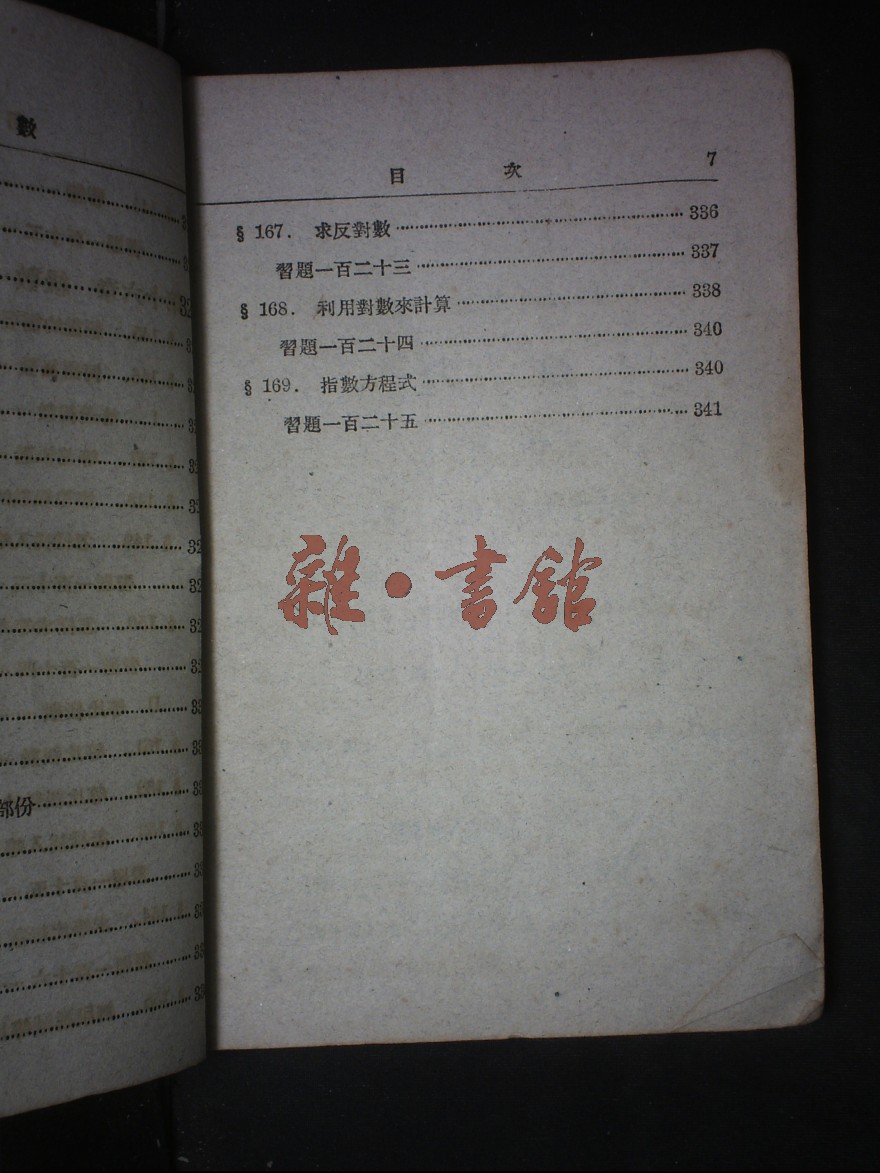 數
部份
目 次 7
§ 167. 求反對數 336
習題一百二十三 337
§ 168. 利用對數來計算 338
習題一百二十四 340
§ 169. 指數方程式 340
習題一百二十五 341
雜·書館